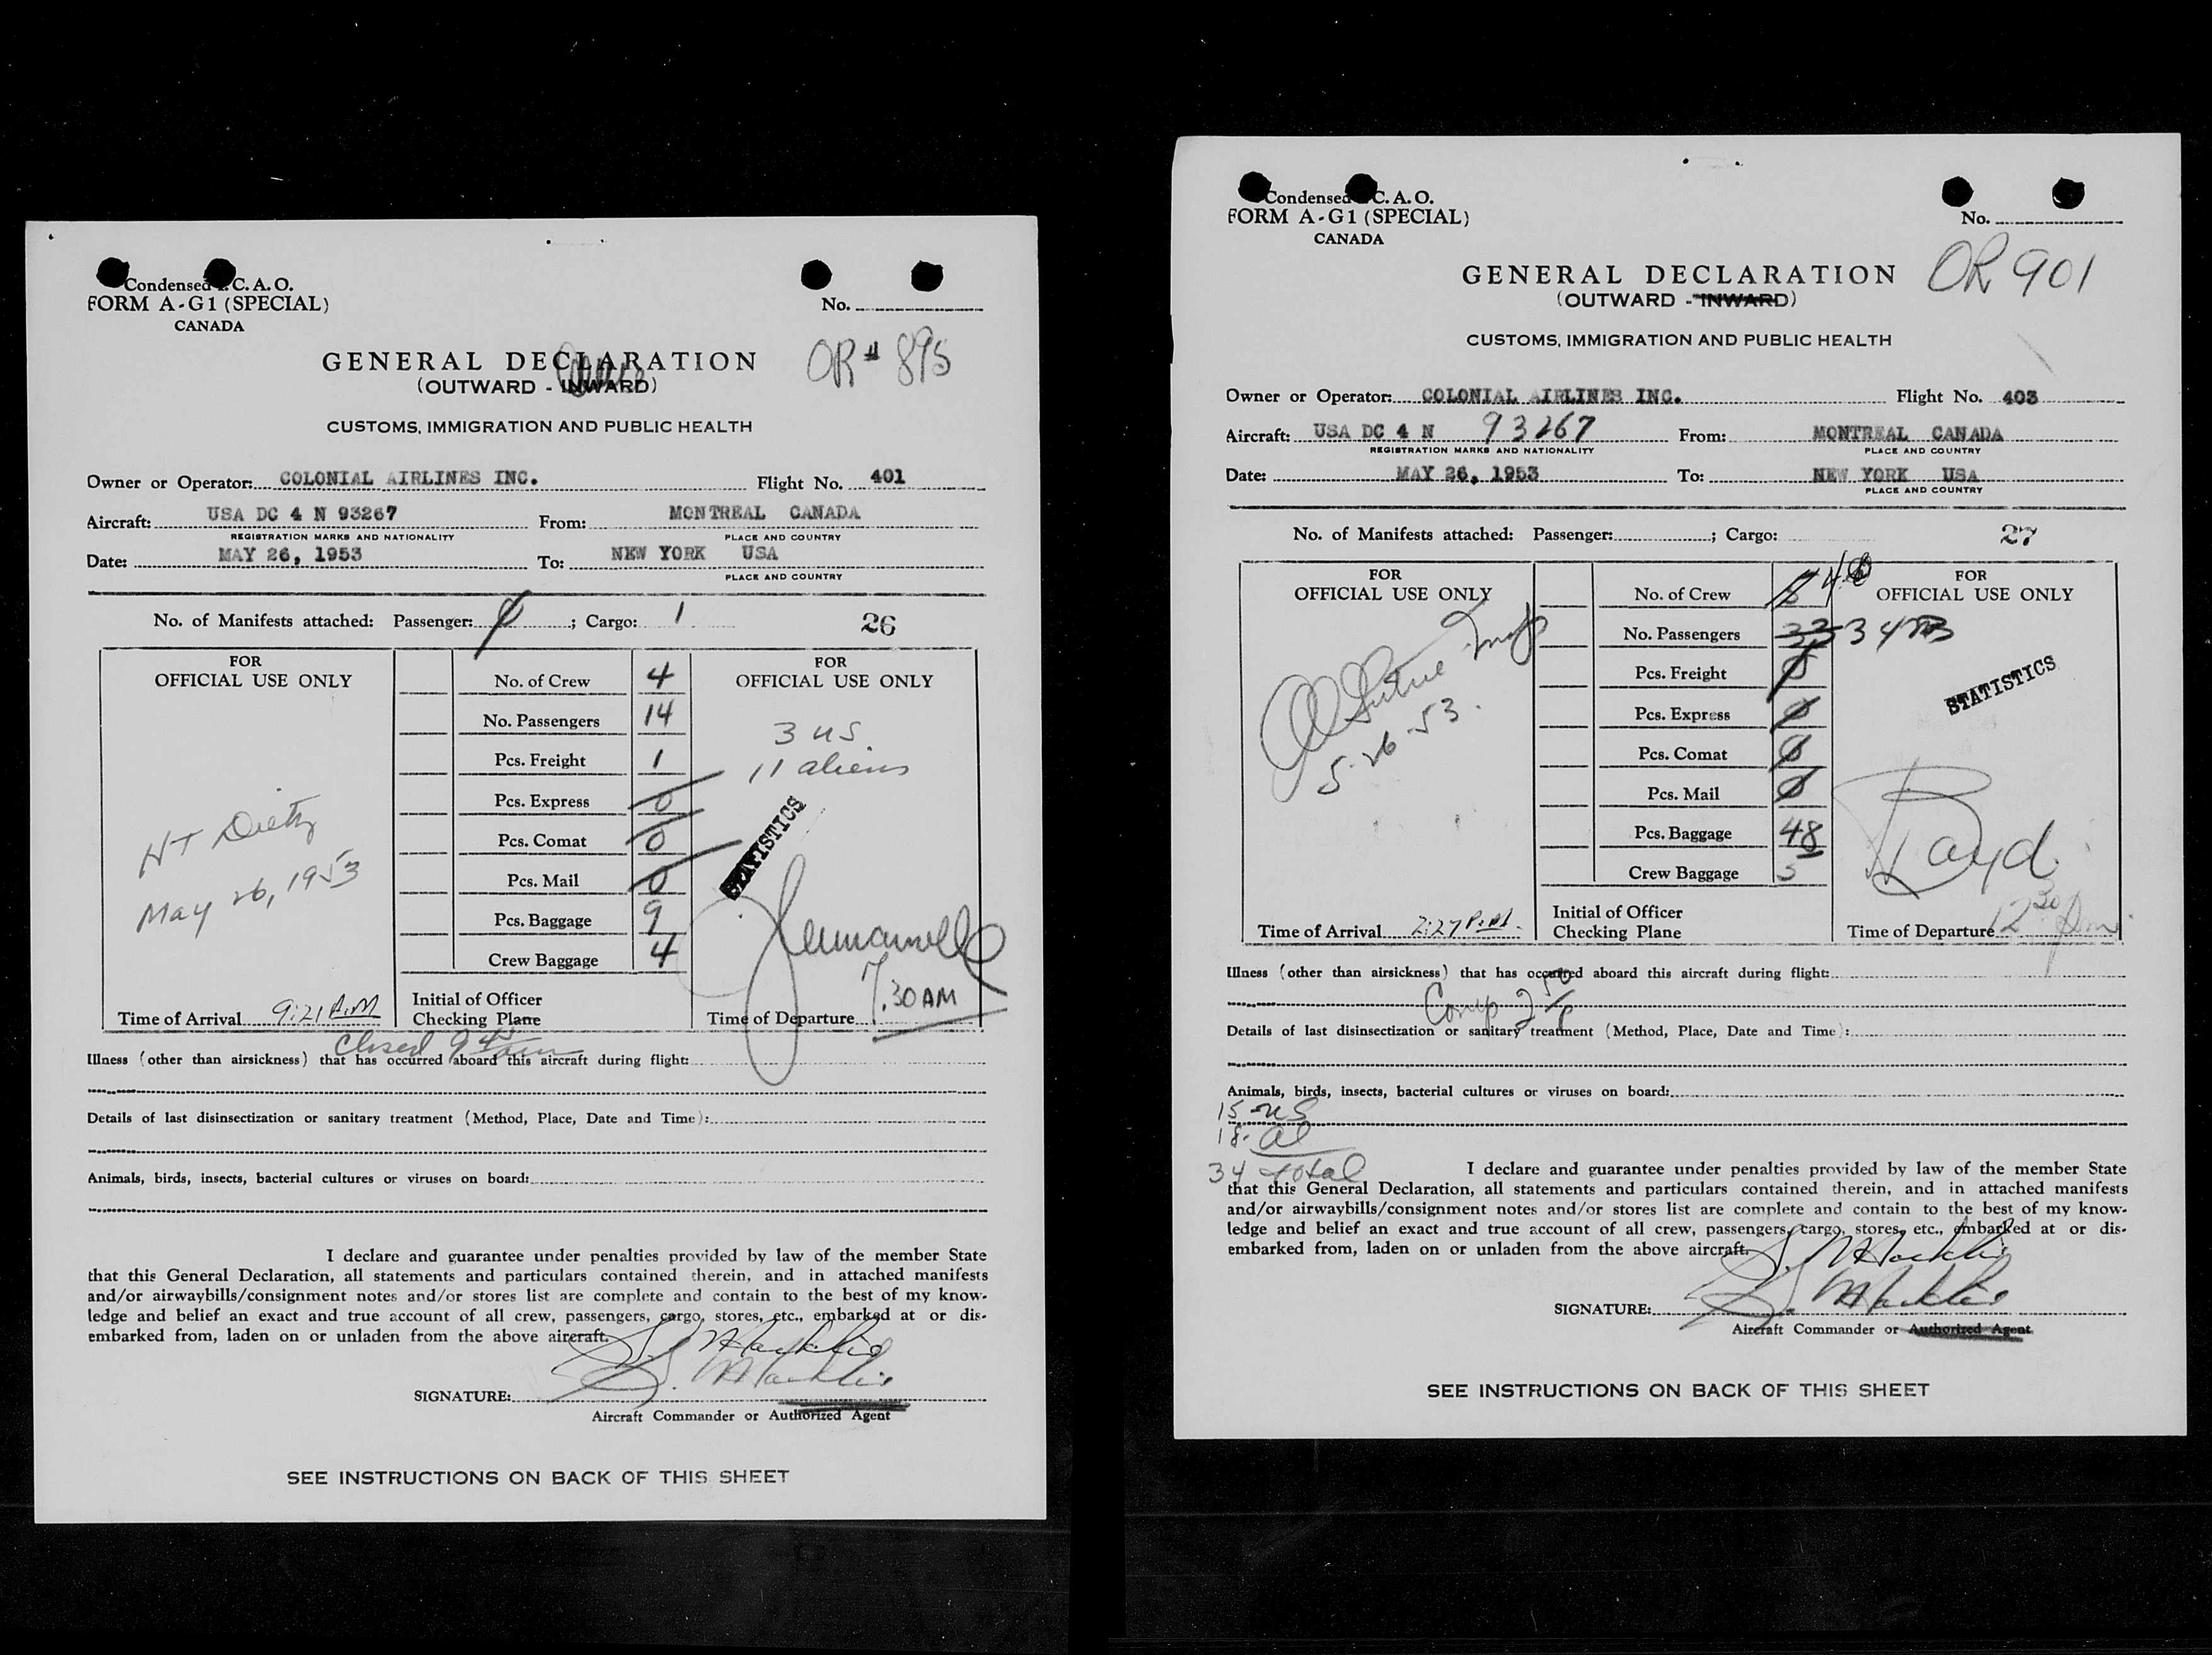 Condensed I.C.A.O.
FORM A-G1 (SPECIAL)
CANADA
No.
OR# 895
GENERAL DECLARATION
(OUTWARD - INWARD)
CUSTOMS, IMMIGRATION AND PUBLIC HEALTH
Owner or Operator: COLONIAL AIRLINES INC. Flight No. 401
Aircraft: USA DC 4 N 93267 From: MONTREAL CANADA
REGISTRATION MARKS AND NATIONALITY PLACE AND COUNTRY
Date: MAY 26, 1953 To: NEW YORK USA
PLACE AND COUNTRY
No. of Manifests attached: Passenger: 0; Cargo: 1 26
FOR OFFICIAL USE ONLY
HT Dietz
May 26, 1953
Time of Arrival 9:21 A.M
No. of Crew 4
No. Passengers 14
Pcs. Freight 1
Pcs. Express 0
Pcs. Comat 0
Pcs. Mail 0
Pcs. Baggage 9
Crew Baggage 4
Initial of Officer
Checking Plane
FOR OFFICIAL USE ONLY
3 US.
11 aliens
STATISTICS
Time of Departure 7.30 AM
Closed 9 45 am
Illness (other than airsickness) that has occurred aboard this aircraft during flight:
Details of last disinsectization or sanitary treatment (Method, Place, Date and Time):
Animals, birds, insects, bacterial cultures or viruses on board:
I declare and guarantee under penalties provided by law of the member State
that this General Declaration, all statements and particulars contained therein, and in attached manifests
and/or airwaybills/consignment notes and/or stores list are complete and contain to the best of my know-
ledge and belief an exact and true account of all crew, passengers, cargo, stores, etc., embarked at or dis-
embarked from, laden on or unladen from the above aircraft.
S. Macklin
SIGNATURE: S. Macklin
Aircraft Commander or Authorized Agent
SEE INSTRUCTIONS ON BACK OF THIS SHEET
Condensed I.C.A.O.
FORM A-G1 (SPECIAL)
CANADA
No.
OR 901
GENERAL DECLARATION
(OUTWARD - INWARD)
CUSTOMS, IMMIGRATION AND PUBLIC HEALTH
Owner or Operator: COLONIAL AIRLINES INC. Flight No. 403
Aircraft: USA DC 4 N 93267 From: MONTREAL CANADA
REGISTRATION MARKS AND NATIONALITY PLACE AND COUNTRY
Date: MAY 26, 1953 To: NEW YORK USA
PLACE AND COUNTRY
No. of Manifests attached: Passenger: ; Cargo: 27
FOR OFFICIAL USE ONLY
5-26-53.
Time of Arrival 2:27 P.M.
No. of Crew 5 4
No. Passengers 33 34
Pcs. Freight 0
Pcs. Express 0
Pcs. Comat 0
Pcs. Mail 0
Pcs. Baggage 48
Crew Baggage 5
Initial of Officer
Checking Plane
FOR OFFICIAL USE ONLY
STATISTICS
Boyd
Time of Departure 12 30 pm
Illness (other than airsickness) that has occurred aboard this aircraft during flight:
Comp 2 50 P
Details of last disinsectization or sanitary treatment (Method, Place, Date and Time):
Animals, birds, insects, bacterial cultures or viruses on board:
15 US
18. al
34 total
I declare and guarantee under penalties provided by law of the member State
that this General Declaration, all statements and particulars contained therein, and in attached manifests
and/or airwaybills/consignment notes and/or stores list are complete and contain to the best of my know-
ledge and belief an exact and true account of all crew, passengers, cargo, stores, etc., embarked at or dis-
embarked from, laden on or unladen from the above aircraft.
S. Macklin
SIGNATURE: S. Macklin
Aircraft Commander or Authorized Agent
SEE INSTRUCTIONS ON BACK OF THIS SHEET